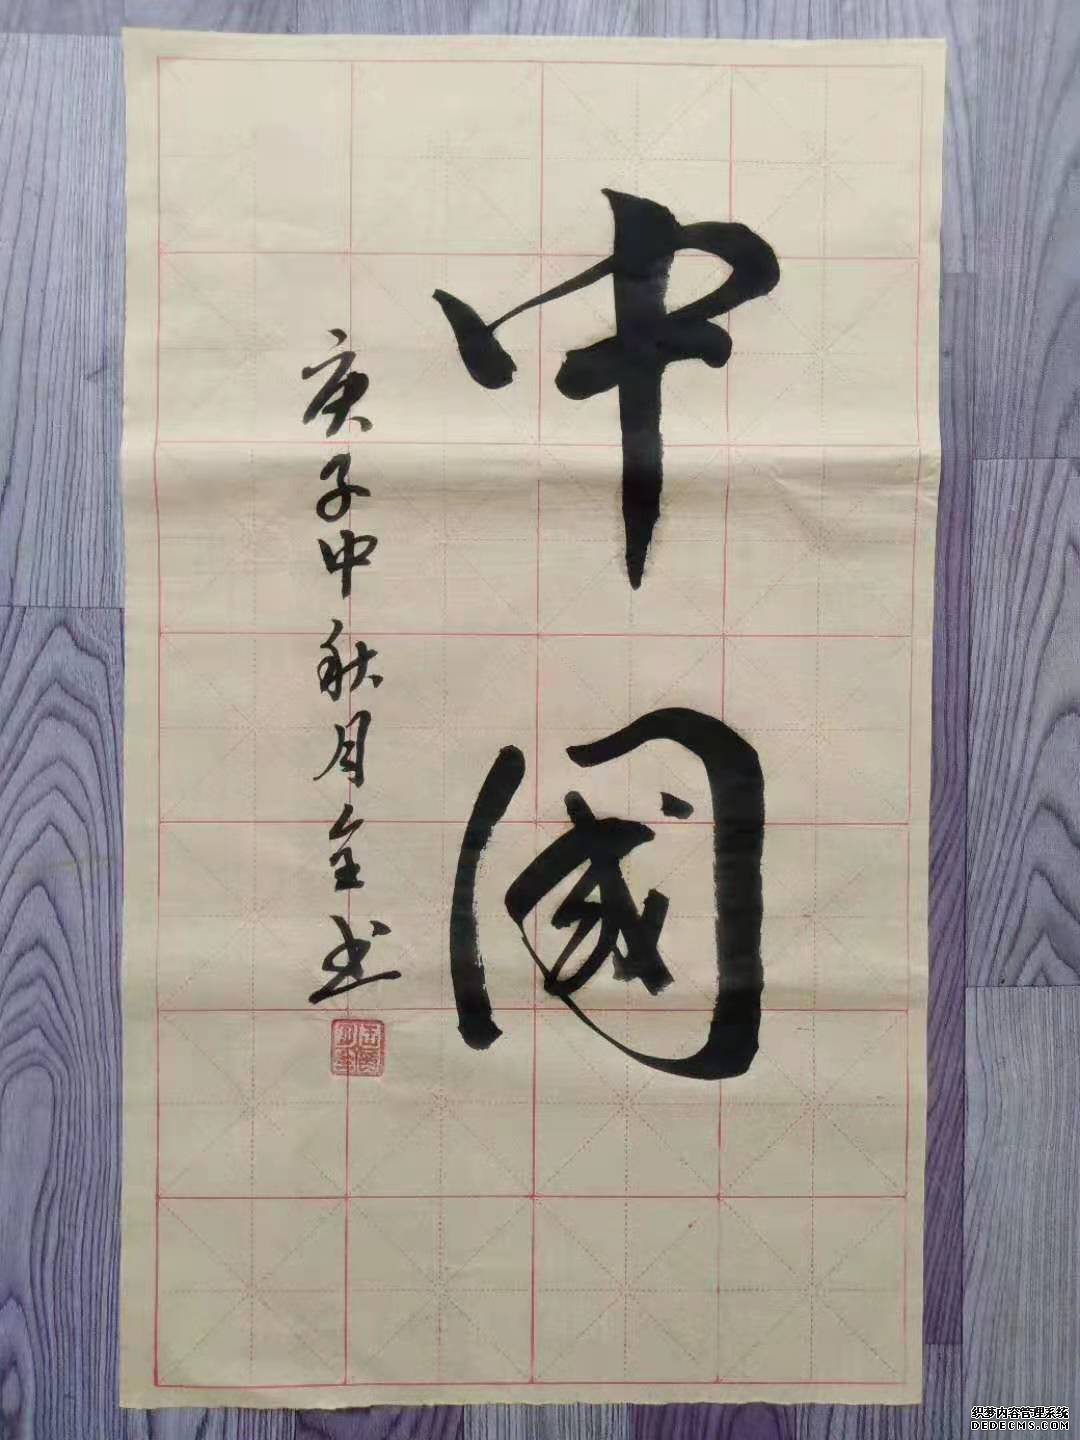 中國
庚子中秋月全书
织梦内容管理系统
DEDECMS.COM